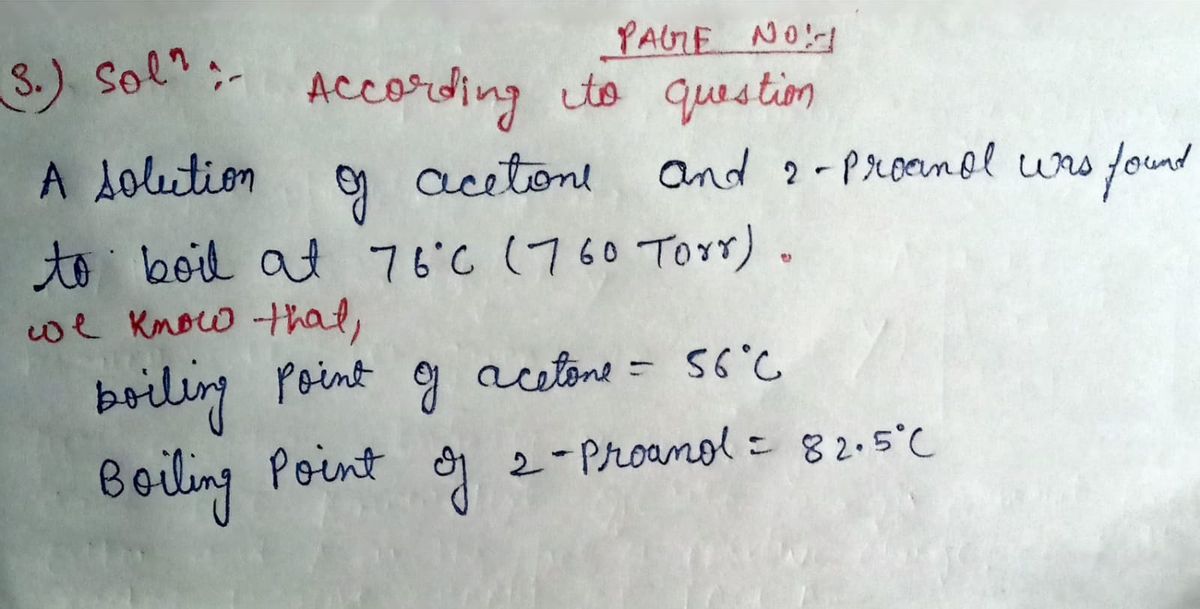 PAGE NO:-1
3.) Solⁿ :- According to question
A solution of acetone and 2-Proanol was found
to boil at 76°C (760 Torr).
we know that,
boiling point of acetone = 56°C
Boiling Point of 2-Proanol = 82.5°C